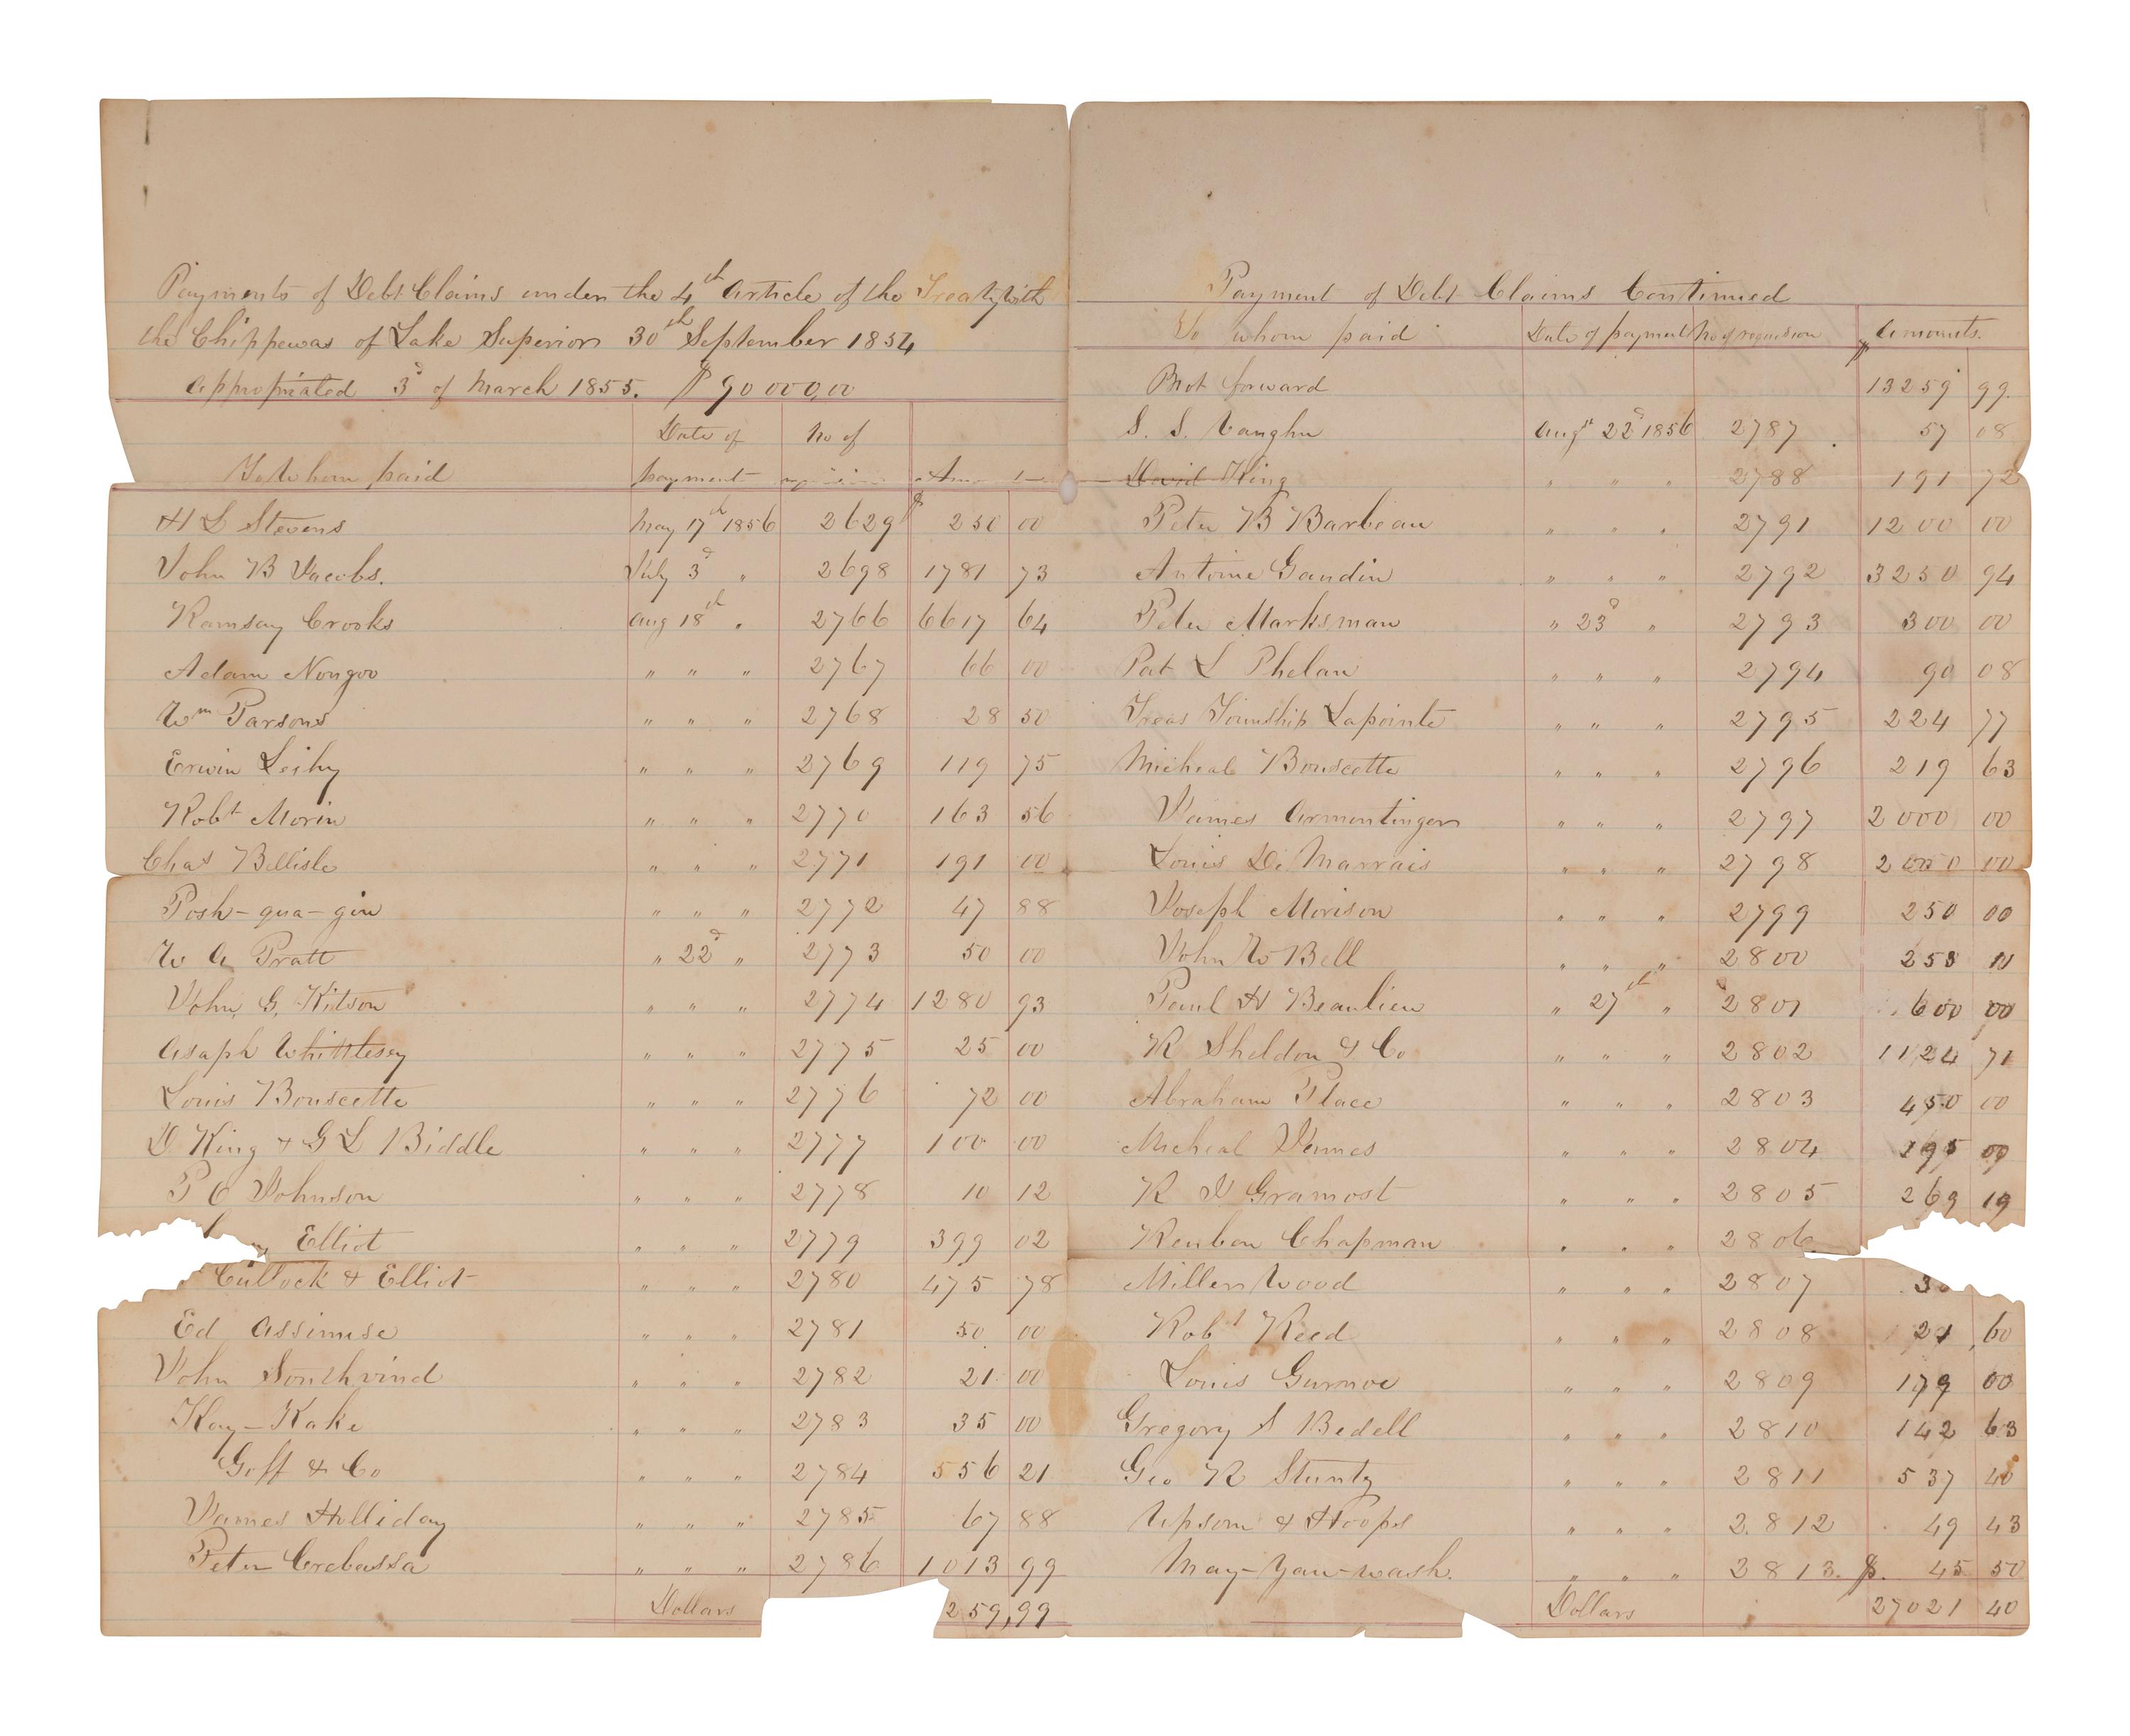 Payments of Debt Claims under the 4th Article of the Treaty with
the Chippewas of Lake Superior 30th September 1854
Appropriated 3d of March 1855. $90000,00
Date of No of
To Whom paid payment
H L Stevens May 17th 1856 2629 $ 250 00
John B Jacobs. July 3d " 2698 1781 73
Ramsay Crooks Aug 18th " 2766 6617 64
Adam Nongoo " " " 2767 66 00
Wm Parsons " " " 2768 28 50
Erwin Leihy " " " 2769 119 75
Robt Morin " " " 2770 163 56
Chas Bellisle " " " 2771 191 00
Posh-qua-gin " " " 2772 47 88
W A Pratt " 22d " 2773 50 00
John G. Kitson " " " 2774 1280 93
Asaph Whittlesey " " " 2775 25 00
Louis Bouscette " " " 2776 72 00
D King & G L Biddle " " " 2777 100 00
P O Johnson " " " 2778 10 12
Elliot " " " 2779 399 02
Cullock & Elliot " " " 2780 475 78
Ed Assinise " " " 2781 50 00
John Southwind " " " 2782 21 00
Kay-Kake " " " 2783 35 00
Goff & Co " " " 2784 556 21
James Holliday " " " 2785 67 88
Peter Crebassa " " " 2786 1013 99
Dollars 259,99
Payment of Debt Claims Continued
To whom paid Date of payment No of requisition Amounts.
Brot forward 13259 99.
S. S. Vaughn Augst 22d 1856 2787 57 08
David King " " " 2788 191 72
Peter B Barbeau " " " 2791 1200 00
Antoine Gaudin " " " 2792 3250 94
Peter Marksman " 23d " 2793 300 00
Pat L Phelan " " " 2794 90 08
Treas Township Lapointe " " " 2795 224 77
Micheal Bouscette " " " 2796 219 63
James Ermentinger " " " 2797 2000 00
Louis De Marrais " " " 2798 2000 00
Joseph Morison " " " 2799 250 00
John W Bell " " " 2800 258 11
Paul H Beaulieu " 27th " 2801 600 00
R Sheldon & Co " " " 2802 1124 71
Abraham Place " " " 2803 450 00
Micheal James " " " 2804 195 00
R D Gramost " " " 2805 269 19
Reuben Chapman " " " 2806
Miller Wood " " " 2807
Robt Reed " " " 2808 21 60
Louis Gurnoe " " " 2809 179 00
Gregory S Bedell " " " 2810 142 63
Geo R Stuntz " " " 2811 537 40
Upsom & Hoops " " " 2812 49 43
May-Yaw-wash. " " " 2813. $. 45 50
Dollars 27021 40